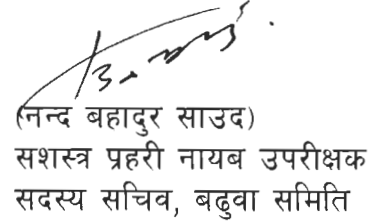 (नन्द बहादुर साउद)
सशस्त्र प्रहरी नायब उपरीक्षक
सदस्य सचिव, बढुवा समिति